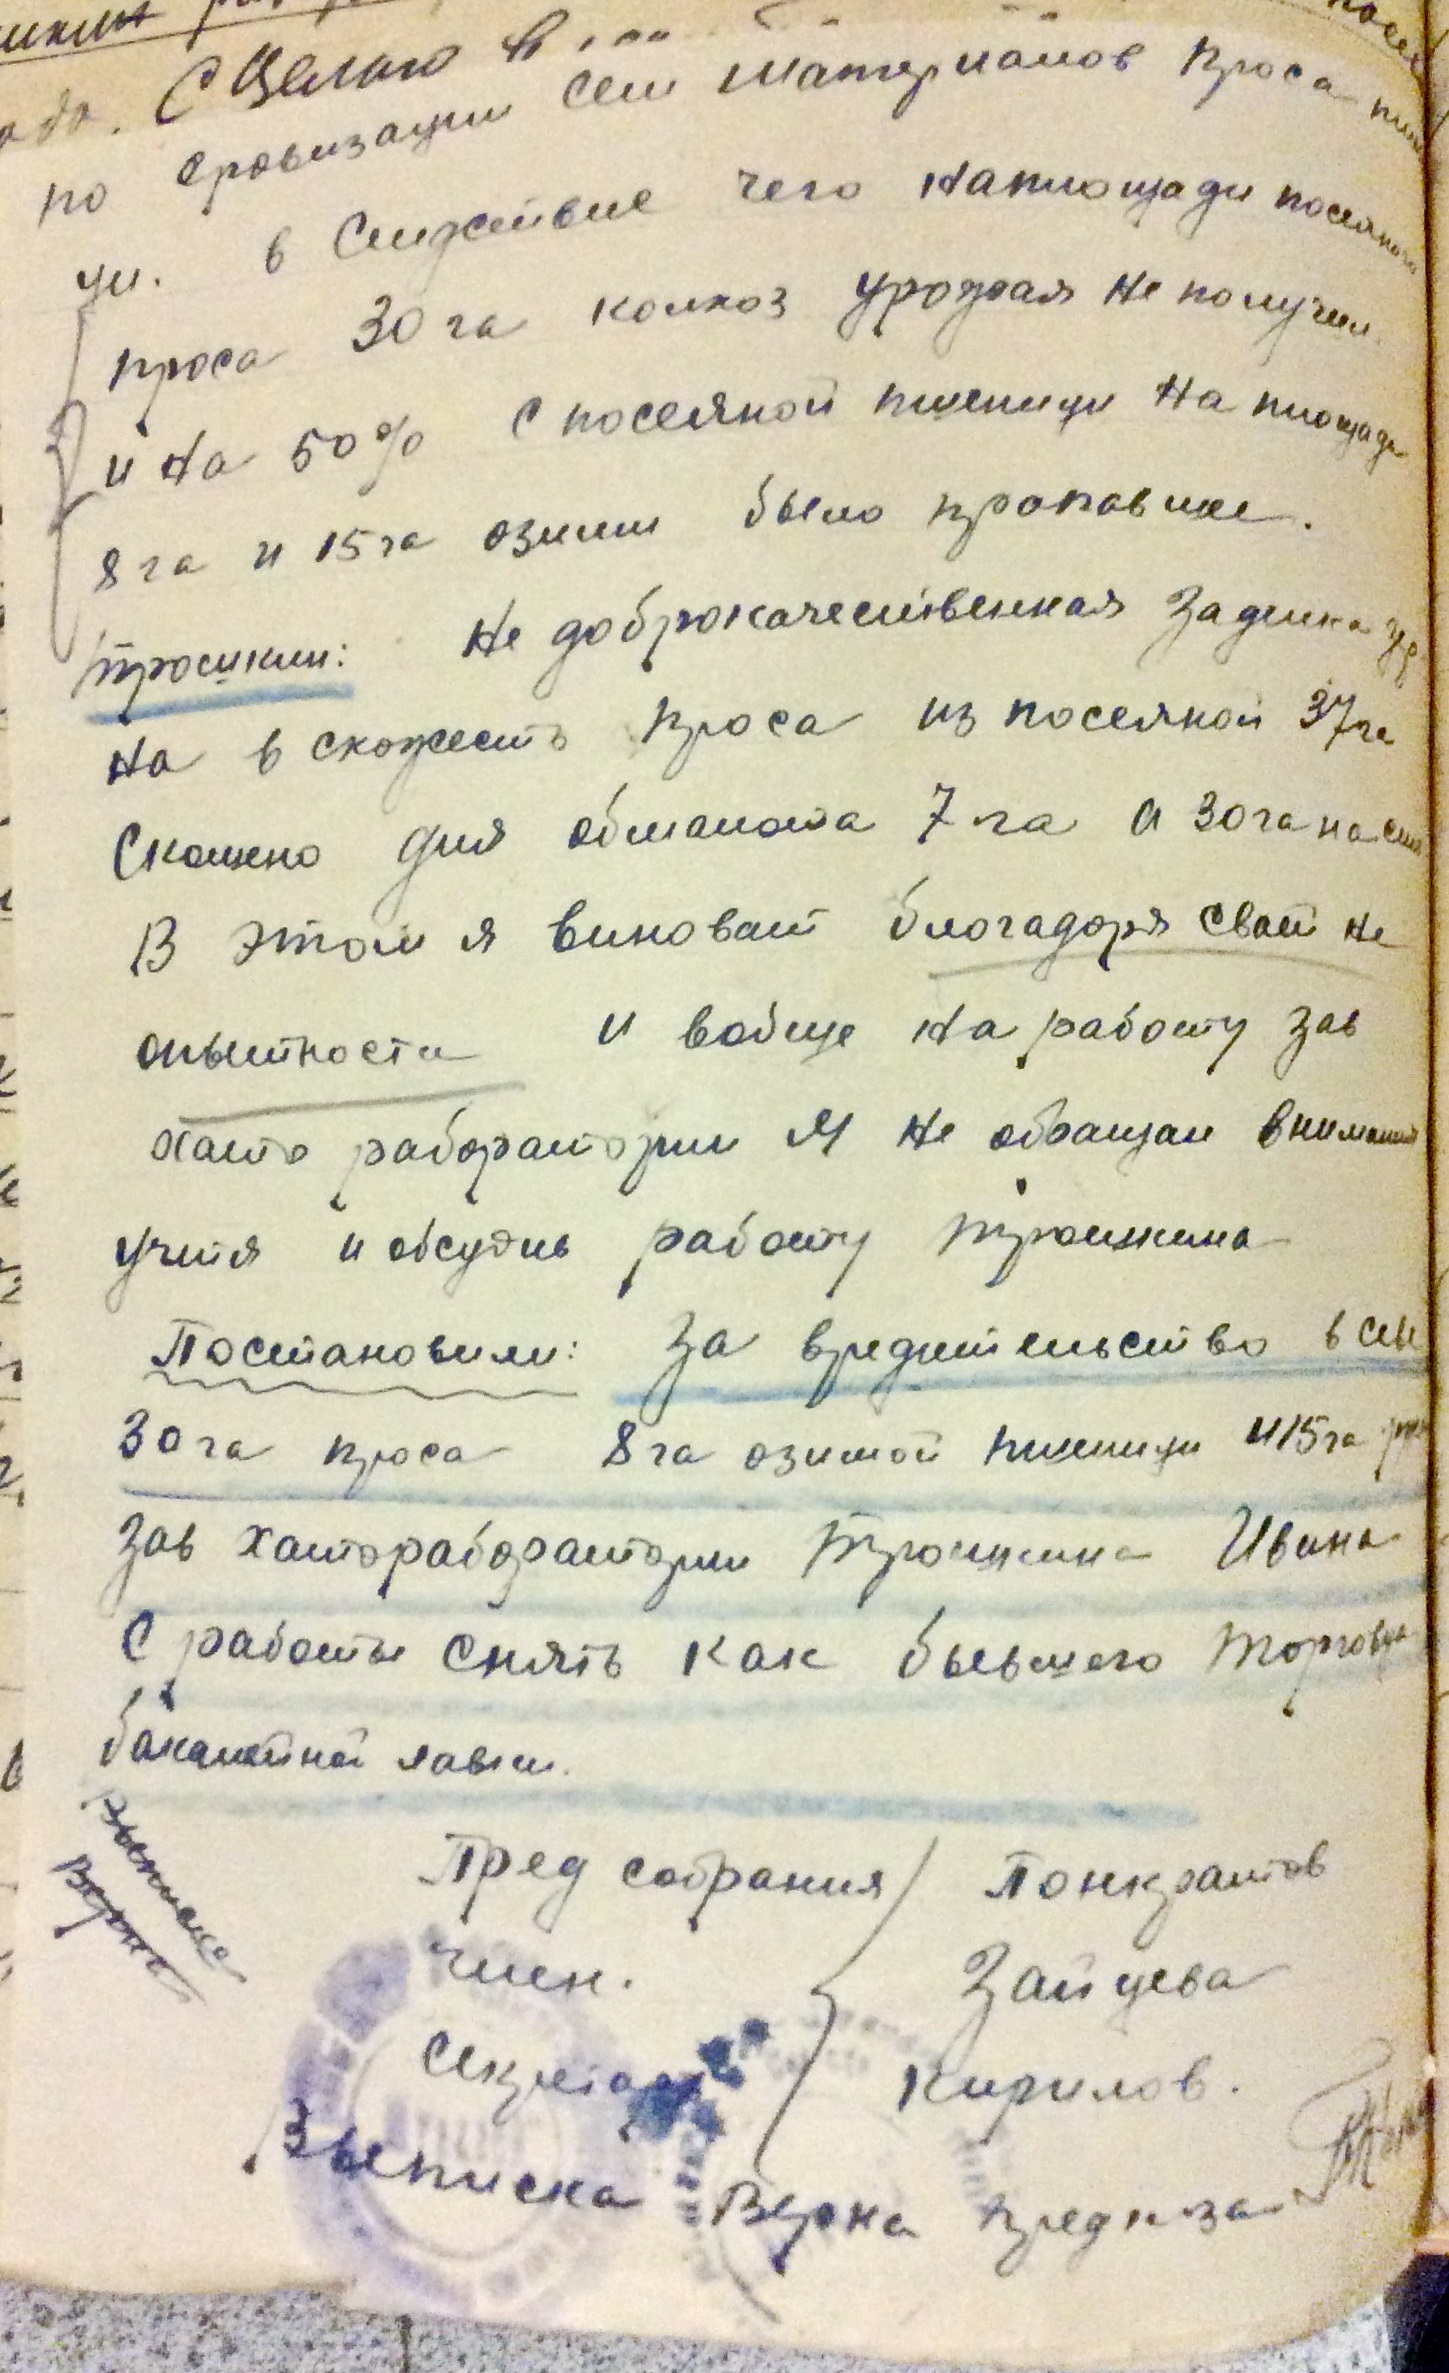 С Целью в
по яровизации сем материалов проса пше
ци. в Следствие чего на площади посеяного
проса 30 га колхоз урожая не получил.
и на 50% с посеяной пшеницы на площади
8 га и 15 га озими было пропавшее.
Трошкин: Не доброкачественная Заделка
на в схожесть проса из посеяной 37 га
Скошено для обмалота 7 га а 30 га на
В этом я виноват благодоря своей не
опытности и вобще на работу зав
хатолаборатории Я не обращал внимания
учтя и обсудив работу Трошкина
Постановили: За вредительство в сев
30 га проса 8 га озимой пшеницы и 15 га
Зав Хаталабораторгии Трошкина Ивана
С работы снять как бывшего торговца
бакалейной лавки.
Выписка
Верна
Пред собрания Понкратов
член. Зайцева
Секретарь Кирилов.
Выписка Верна предк-за